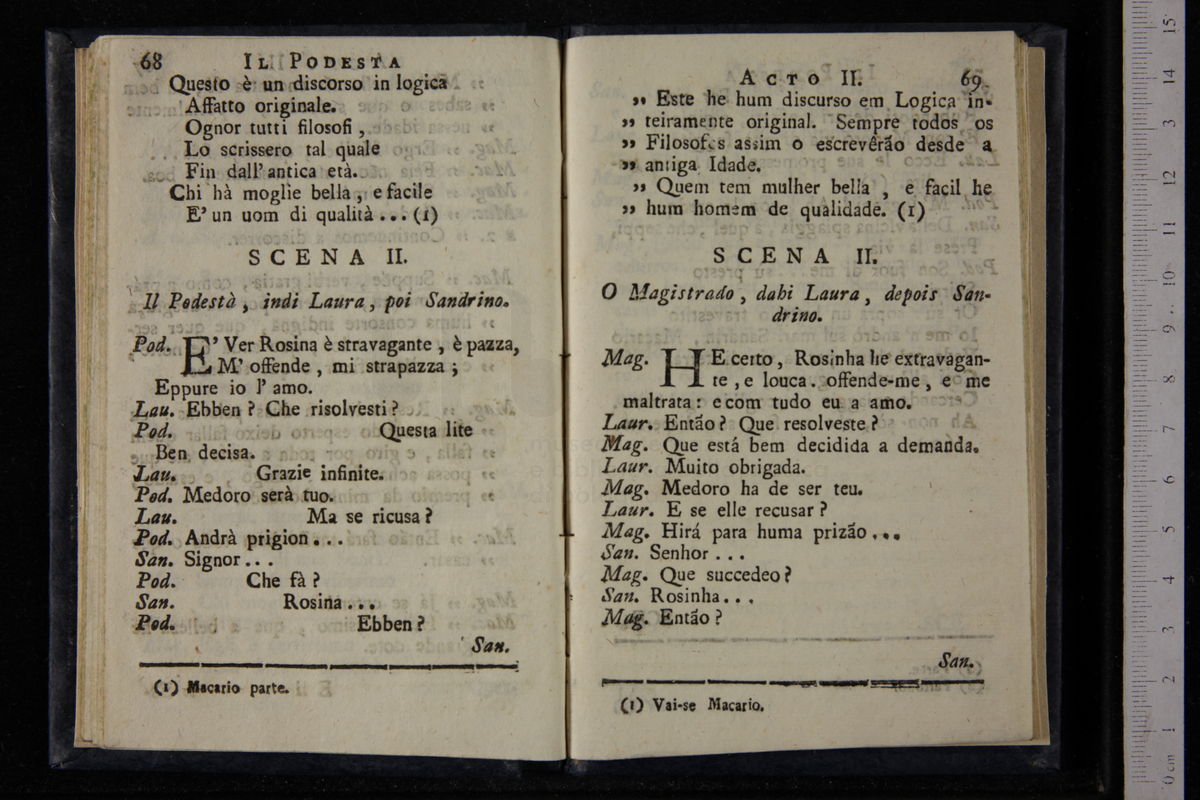 68 IL PODESTA
Questo è un discorso in logica
Affatto originale.
Ognor tutti filosofi ,
Lo scrissero tal quale
Fin dall' antica età.
Chi hà moglie bella , e facile
E' un uom di qualità ... (1)
SCENA II.
Il Podestà , indi Laura , poi Sandrino.
Pod. E' Ver Rosina è stravagante , è pazza,
M' offende , mi strapazza ;
Eppure io l' amo.
Lau. Ebben ? Che risolvesti ?
Pod. Questa lite
Ben decisa.
Lau. Grazie infinite.
Pod. Medoro serà tuo.
Lau. Ma se ricusa ?
Pod. Andrà prigion...
San. Signor...
Pod. Che fà ?
San. Rosina...
Pod. Ebben ?
San.
(1) Macario parte.
ACTO II. 69
„ Este he hum discurso em Logica in-
„ teiramente original. Sempre todos os
„ Filosofos assim o escrevêrão desde a
„ antiga Idade.
„ Quem tem mulher bella , e facil he
„ hum homem de qualidade. (1)
SCENA II.
O Magistrado , dahi Laura , depois San-
drino.
Mag. HE certo , Rosinha he extravagan-
te , e louca. offende-me , e me
maltrata : e com tudo eu a amo.
Laur. Então ? Que resolveste ?
Mag. Que está bem decidida a demanda.
Laur. Muito obrigada.
Mag. Medoro ha de ser teu.
Laur. E se elle recusar ?
Mag. Hirá para huma prizão...
San. Senhor...
Mag. Que succedeo ?
San. Rosinha...
Mag. Então ?
San.
(1) Vai-se Macario.
0 cm 1 2 3 4 5 6 7 8 9 10 11 12 3 14 15